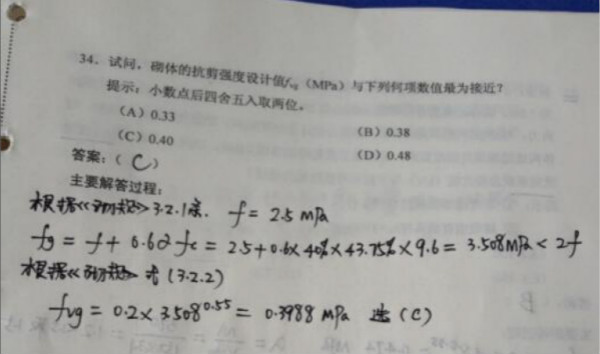 34. 试问，砌体的抗剪强度设计值fvg（MPa）与下列何项数值最为接近？
提示：小数点后四舍五入取两位。
（A）0.33
（B）0.38
（C）0.40
（D）0.48
答案：（ C ）
主要解答过程：
根据《砌规》3.2.1条. f = 2.5 MPa
fg = f + 0.6αfc = 2.5+0.6×40%×43.75%×9.6 = 3.508MPa < 2f
根据《砌规》式 (3.2.2)
fvg = 0.2×3.508^0.55 = 0.3988 MPa 选 (C)